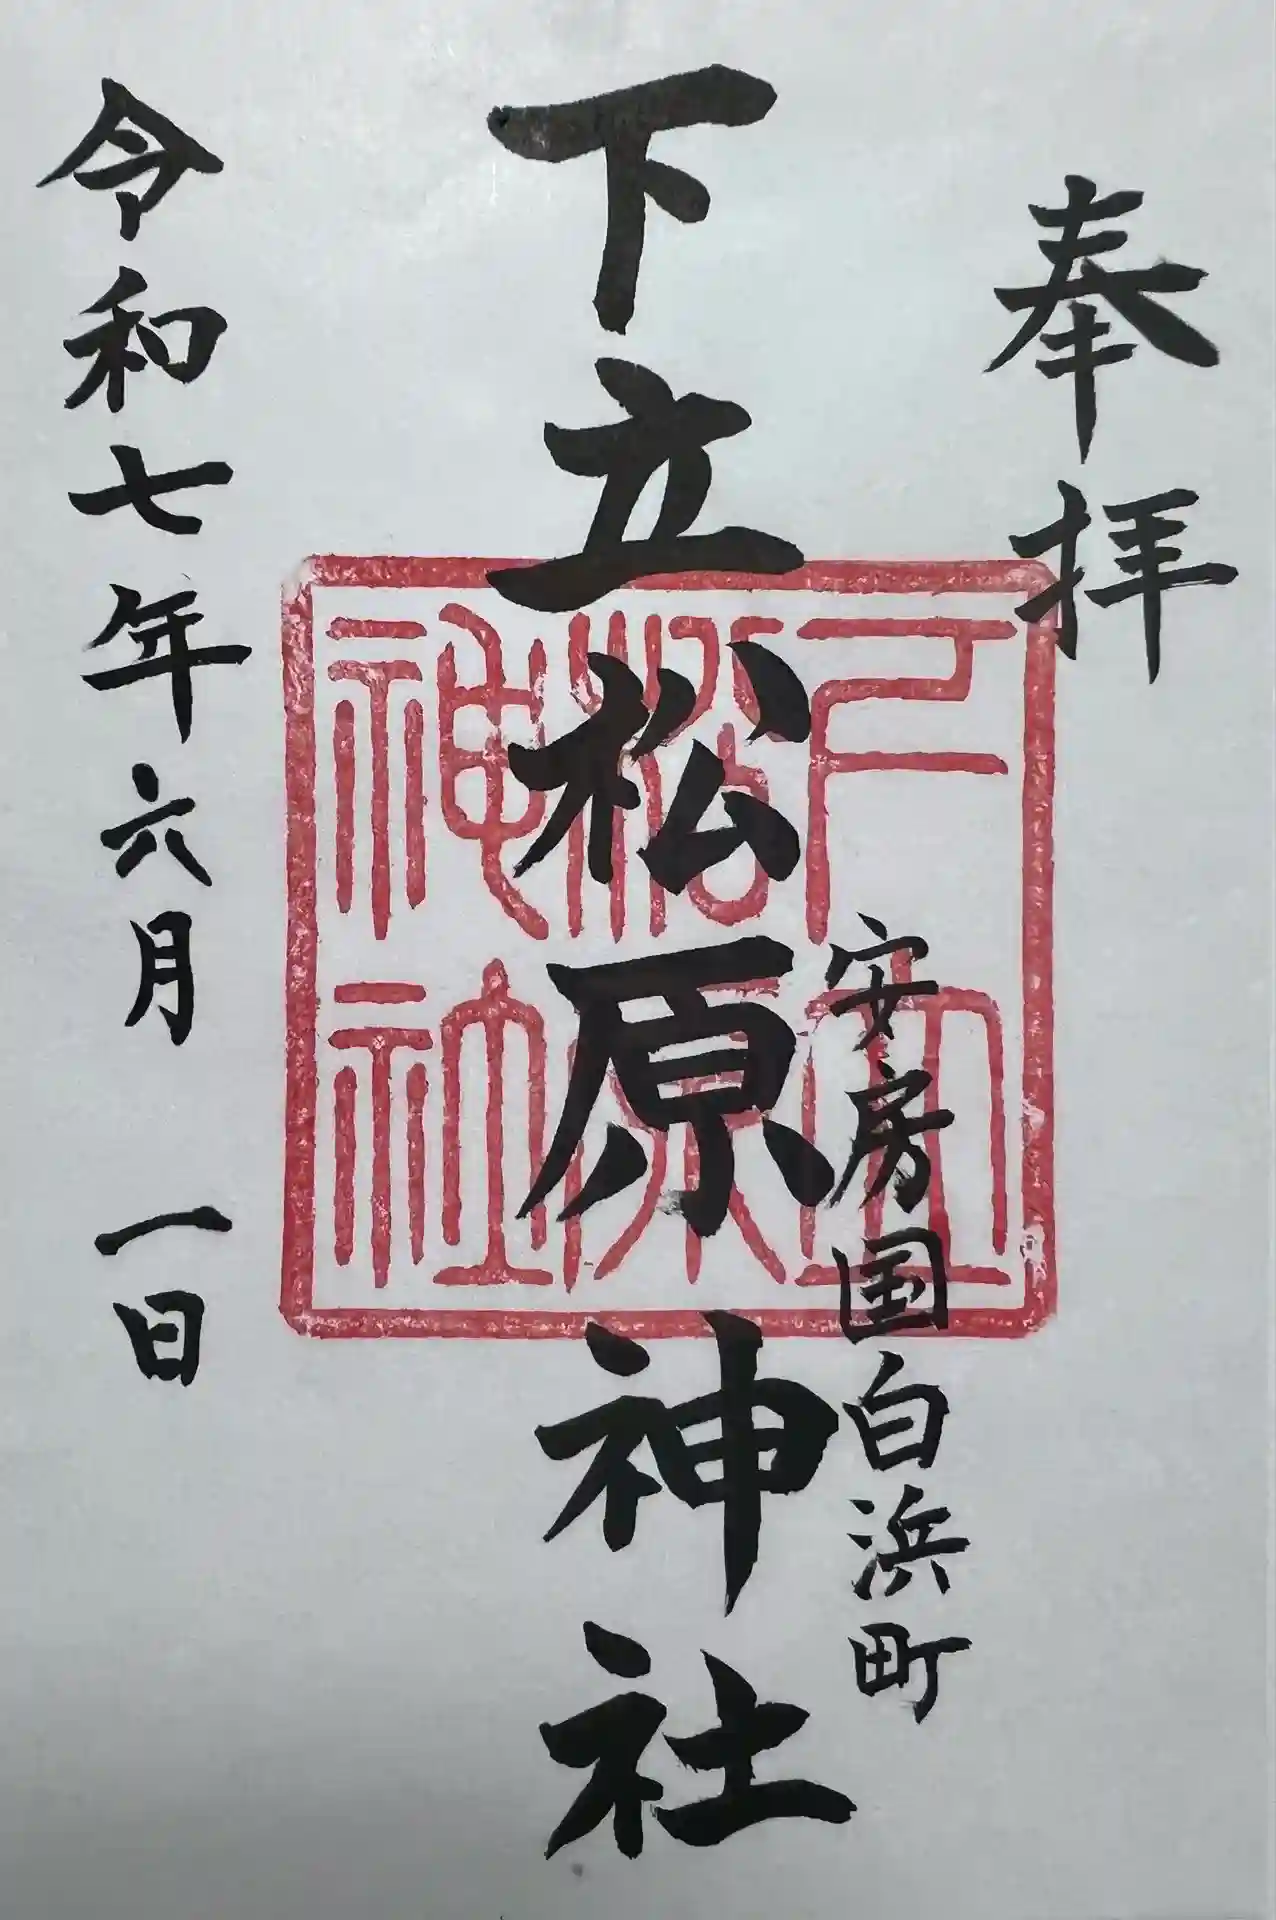 奉拝
安房国白浜町
下立松原神社
令和七年六月一日
下立
松原
神社